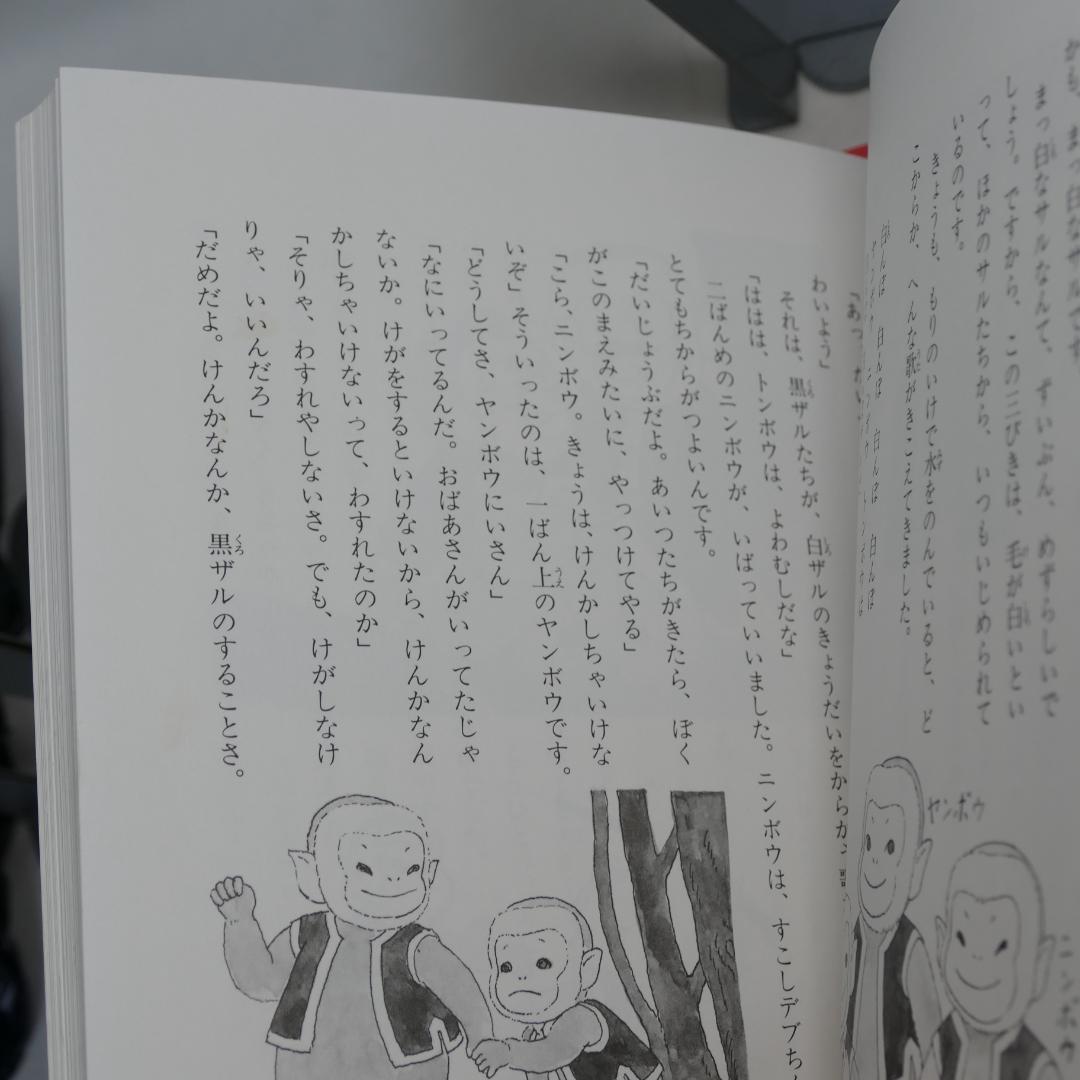 まっ白なサルなんて、ずいぶん、めずらしいで
しょう。ですから、この三びきは、毛が白いとい
って、ほかのサルたちから、いつもいじめられて
いるのです。
きょうも、もりのいけで水をのんでいると、ど
こからか、へんな歌がきこえてきました。
白んぼ 白んぼ 白んぼ 白んぼ
ヤンボウ
ニンボウ
わいよう」
それは、黒ザルたちが、白ザルのきょうだいをからかう
「ははは、トンボウは、よわむしだな」
二ばんめのニンボウが、いばっていいました。ニンボウは、すこしデブち
とてもちからがつよいんです。
「だいじょうぶだよ。あいつたちがきたら、ぼく
がこのまえみたいに、やっつけてやる」
「こら、ニンボウ。きょうは、けんかしちゃいけな
いぞ」そういったのは、一ばん上のヤンボウです。
「どうしてさ、ヤンボウにいさん」
「なにいってるんだ。おばあさんがいってたじゃ
ないか。けがをするといけないから、けんかなん
かしちゃいけないって、わすれたのか」
「そりゃ、わすれやしないさ。でも、けがしなけ
りゃ、いいんだろ」
「だめだよ。けんかなんか、黒ザルのすることさ。